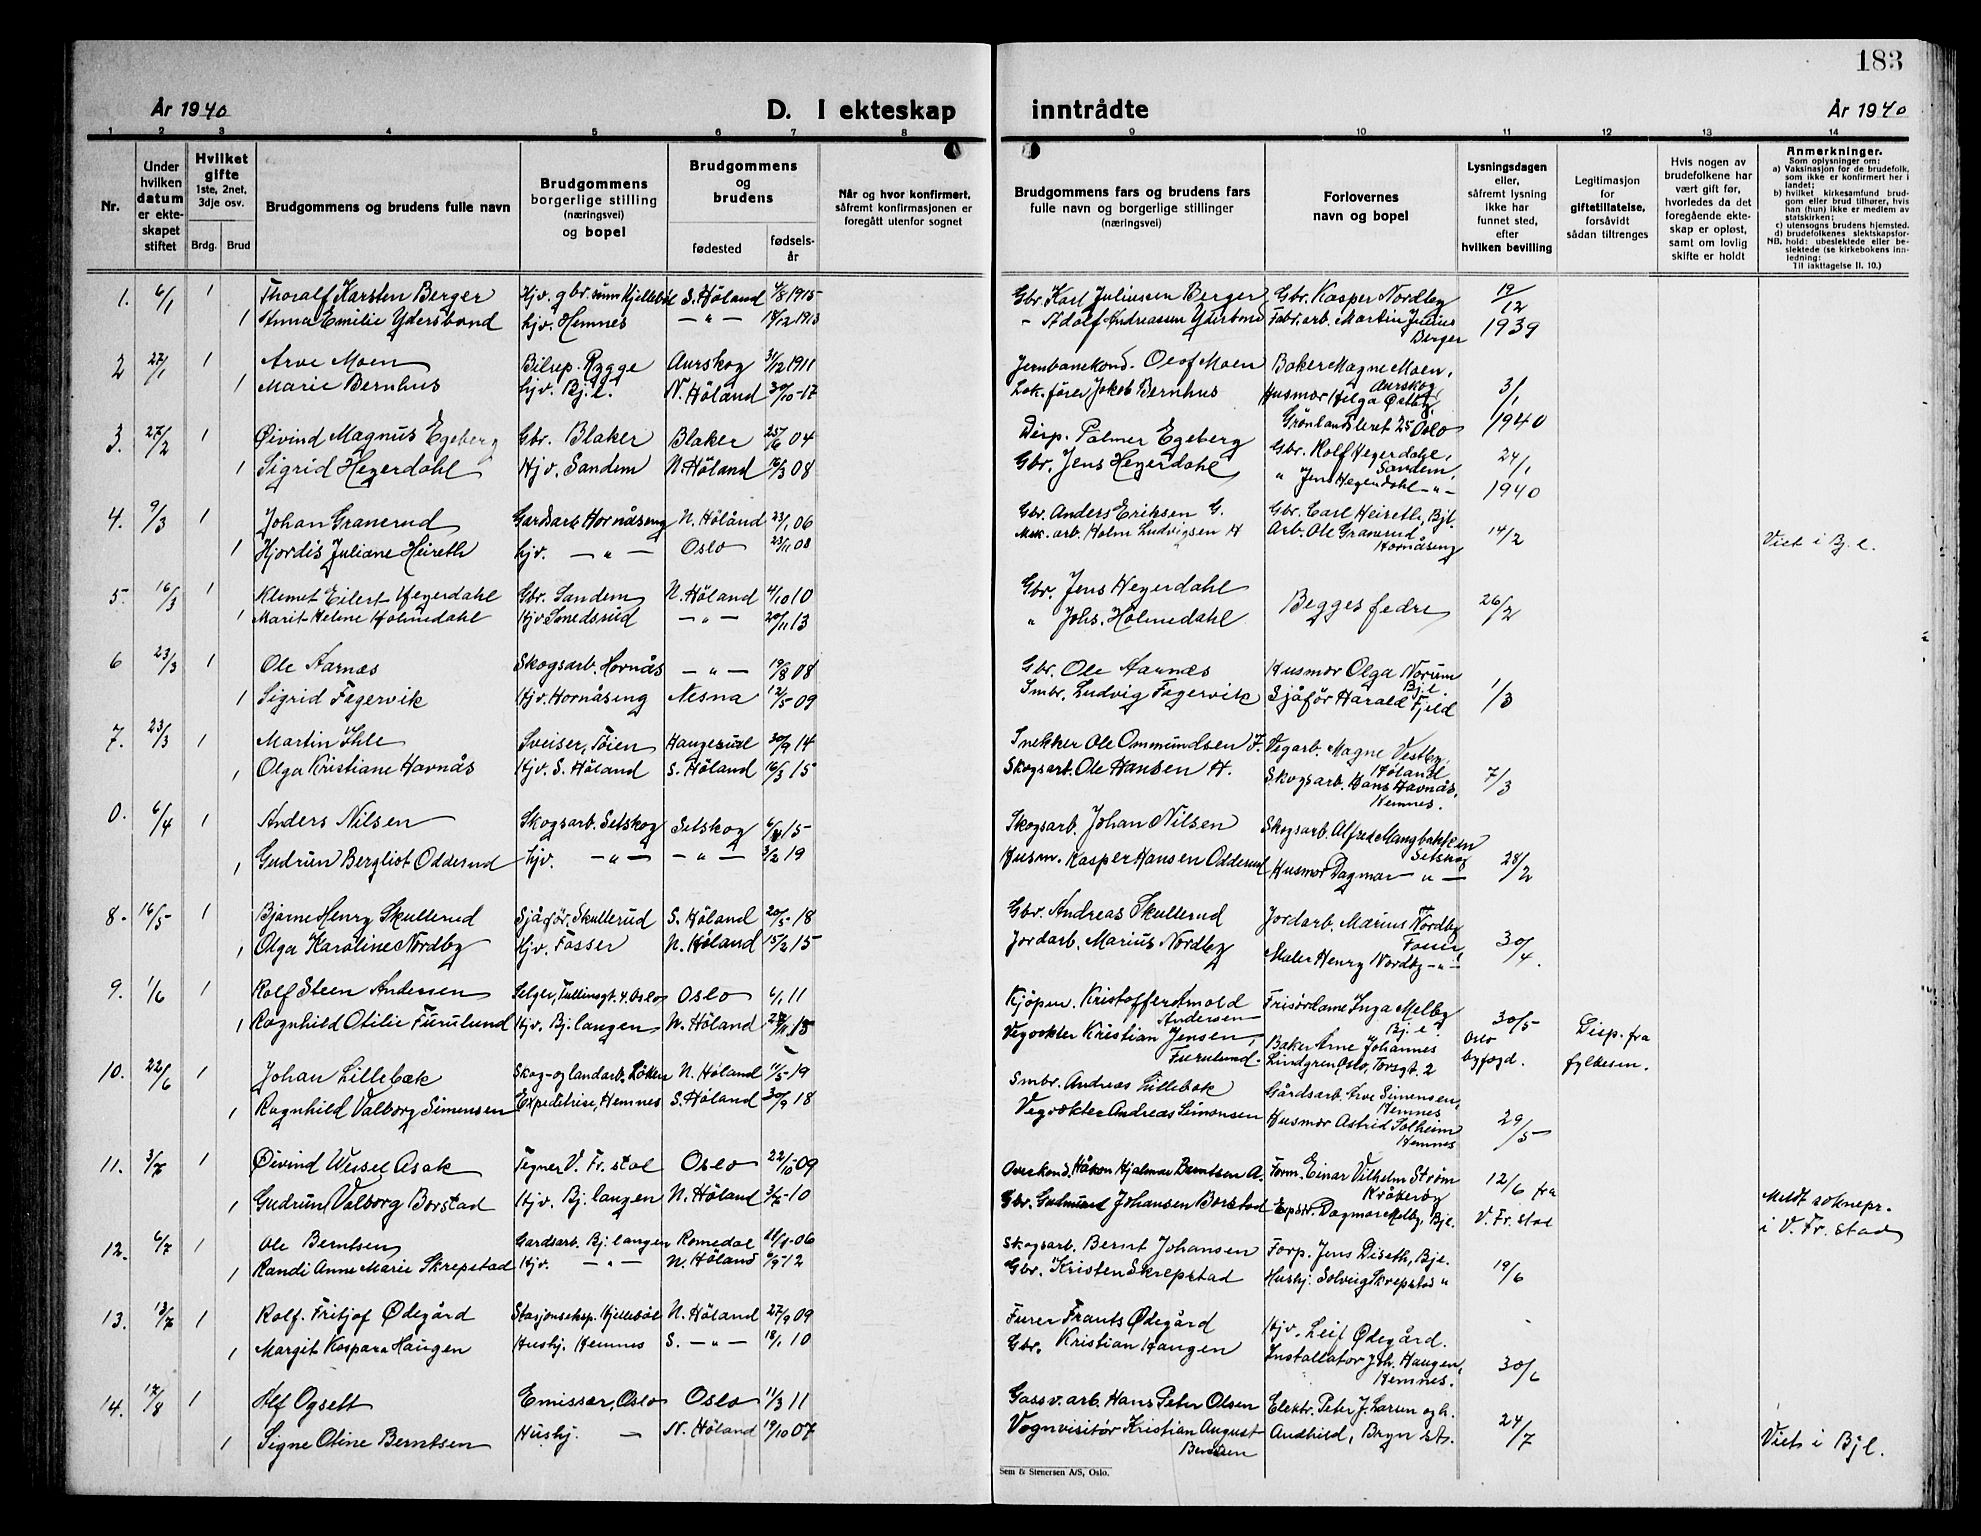 183
År 1940
D. I ekteskap
inntrådte
År 1940
1 2 3 4 5 6 7 8 9 10 11 12 13 14
Nr.
Under hvilken datum er ekte-skapet stiftet
Hvilket gifte 1ste, 2net, 3dje osv.
Brdg. Brud
Brudgommens og brudens fulle navn
Brudgommens borgerlige stilling (næringsvei) og bopel
Brudgommens og brudens
fødested
fødsels-år
Når og hvor konfirmert, såfremt konfirmasjonen er foregått utenfor sognet
Brudgommens fars og brudens fars fulle navn og borgerlige stillinger (næringsvei)
Forlovernes navn og bopel
Lysningsdagen eller, såfremt lysning ikke har funnet sted, efter hvilken bevilling
Legitimasjon for giftetillatelse, forsåvidt sådan tiltrenges
Hvis nogen av brudefolkene har vært gift før, hvorledes da det foregående ekte-skap er opløst, samt om lovlig skifte er holdt
Anmerkninger.
Som oplysninger om:
a) Vaksinasjon for de brudefolk, som ikke er konfirmert her i landet;
b) hvilket kirkesamfund brud-gom eller brud tilhører, hvis han (hun) ikke er medlem av statskirken;
c) utensogns brudens hjemsted.
d) brudefolkenes slektskapsfor-hold: ubeslektede eller be-slektede (se kirkebokens inn-ledning:
NB.
Til iakttagelse II. 10.)
1. 6/1 1 Thoralf Karsten Berger Hjv. gbr. sønn Kjellebøl S. Höland 4/8 1915 Gbr. Karl Juliussen Berger Gbr. Kasper Nordby 19/12
1 Anna Emilie Ydersbond hjv. Hemnes - " - 14/12 1913 - Adolf Andreassen Ydersbond Fabr. arb. Martin Julius Berger 1939
2 27/1 1 Arve Moen Bilrep. Rygge Aurskog 31/12 1911 Jernbanekond. Oluf Moen Baker Magne Moen, Aurskog 3/1
1 Marie Bernhus hjv. Bj.l. N. Höland 30/10-17 Lok. fører Jakob Bernhus Husmor Helga Østby, Grønlandsleret 25 Oslo 1940
3. 27/2 1 Øivind Magnus Egeberg Gbr. Blaker Blaker 25/6 04 Disp. Palmer Egeberg Gbr. Rolf Hegerdahl, Sandem 24/1
1 Sigrid Hegerdahl Hjv. Sandem N. Höland 16/3 08 Gbr. Jens Hegerdahl " Jens Hegerdahl - " - 1940
4. 9/3 1 Johan Granerud Gardsarb. Hornåseng N. Höland 23/1 06 Gbr. Anders Eriksen G. Gbr. Carl Heireth, Bjl. 14/2
1 Hjordis Juliane Heireth hjv. - " - Oslo 23/11 08 Mek. arb. Holm Ludvigsen H Arb. Ole Granerud Hornåseng Viet i Bj. l.
5. 16/3 1 Klemet Eilert Hegerdahl Gbr. Sandem N. Höland 4/10 10 Gbr. Jens Hegerdahl Begges fedre 26/2
1 Marit Helene Holmedahl Hjv. Smedsrud - " - 20/11 13 " Johs. Holmedahl
6 23/3 1 Ole Aarnæs Skogsarb. Hornås - " - 19/8 08 Gbr. Ole Aarnæs Husmor Olga Norum Bjl. 1/3
1 Sigrid Fagervik Hjv. Hornåseng Nesna 12/5-09 Smbr. Ludvig Fagervik Sjåfør Harald Fjeld
7. 23/3 1 Martin Ihle Sveiser, Töien Haugesund 30/9 14 Snekker Ole Ommundsen I. Vegarb. Magne Vestby, Høland 7/3
1 Olga Kristiane Havnås Hjv. S. Höland S. Höland 16/3 15 Skogsarb. Ole Hansen H. Skogsarb. Hans Havnås, Hemnes.
0. 6/4 1 Anders Nilsen Skogsarb. Setskog Setskog 15 Skogsarb. Johan Nilsen Skogsarb. Alfred Mangbakken Setskog 28/2
1 Gudrun Bergliot Odderud hjv. - " - - " - 3/2 19 Husm. Kasper Hansen Odderud Husmor Dagmar - " -
8. 16/5 1 Bjarne Henry Skullerud Sjåfør, Skullerud S. Höland 20/5-18 Gbr. Andreas Skullerud Jordarb. Marius Nordby Fosser 30/4.
1 Olga Karoline Nordby Hjv. Fosser N. Høland 15/2 15 Jordarb. Marius Nordby Maler Henry Nordby - " -
9. 1/6 1 Rolf Steen Andersen Selger, Tullinsgt. 4. Oslo Oslo 6/1 11 Kjøpm. Kristoffer Arnold Andersen Frisørdame Inga Melby Bj. l. 30/5 Oslo byfogd. Disp. fra fylkesm.
1 Ragnhild Otilie Furulund Hjv. Bj. langen N. Höland 27/11 15 Vegvokter Kristian Jensen Furulund. Baker Arne Johannes Lindgren, Oslo, Torsgt. 2
10. 22/6 1 Johan Lillebæk Skog- og landarb. Løken N. Höland 1/5-19 Smbr. Andreas Lillebæk Gårdsarb. Arve Simensen, Hemnes 29/5
1 Ragnhild Valborg Simensen Expeditrise, Hemnes S. Høland 30/9 18 Vegvokter Andreas Simensen Husmor Astrid Solheim Hemnes
11. 3/7 1 Øivind Wessel Asak Tegner V. Fr. stad Oslo 22/10 09 Overkond. Håkon Hjalmar Berntsen A. Form. Einar Vilhelm Strøm Kråkerøy 12/6 fra V. Fr. stad
1 Gudrun Valborg Borstad Hjv. Bj. langen N. Höland 3/6-10 Gbr. Gudmund Johansen Borstad Exped. Dagmar Melby, Bjl. Meldt soknepr. i V. Fr. stad
12. 6/7 1 Ole Berntsen Gardsarb. Bj. langen Romedal 11/1-06 Skogsarb. Bernt Johansen Forp. Jens Diseth, Bjl. 19/6
1 Randi Anne Marie Skrepstad Hjv. - " - N. Höland 9/9-12 Gbr. Kristen Skrepstad Hushj. Solveig Skrepstad "
13. 13/7 1 Rolf. Fritjof Ødegård Stasjonseksp. Kjellebøl N. Höland 27/9 09 Furer Frants Ødegård Hjv. Leif Ødegård. 30/6
1 Margit Kaspara Haugen Hushj. Hemnes S. - " - 18/1 10 Gbr. Kristian Haugen Installatør Joh. Haugen, Hemnes.
14. 17/8 1 Alf Ogsett Emissær, Oslo Oslo 11/3 11 Gassv. arb. Hans Peter Olsen Elektr. Peter J. Larsen og h. 24/7
1 Signe Otine Berntsen Hushj. - N. Höland 19/10 07 Vognvisitør Kristian August Berntsen Andhild, Bryn st. Viet i Bjl.
Sem & Stenersen A/S, Oslo.